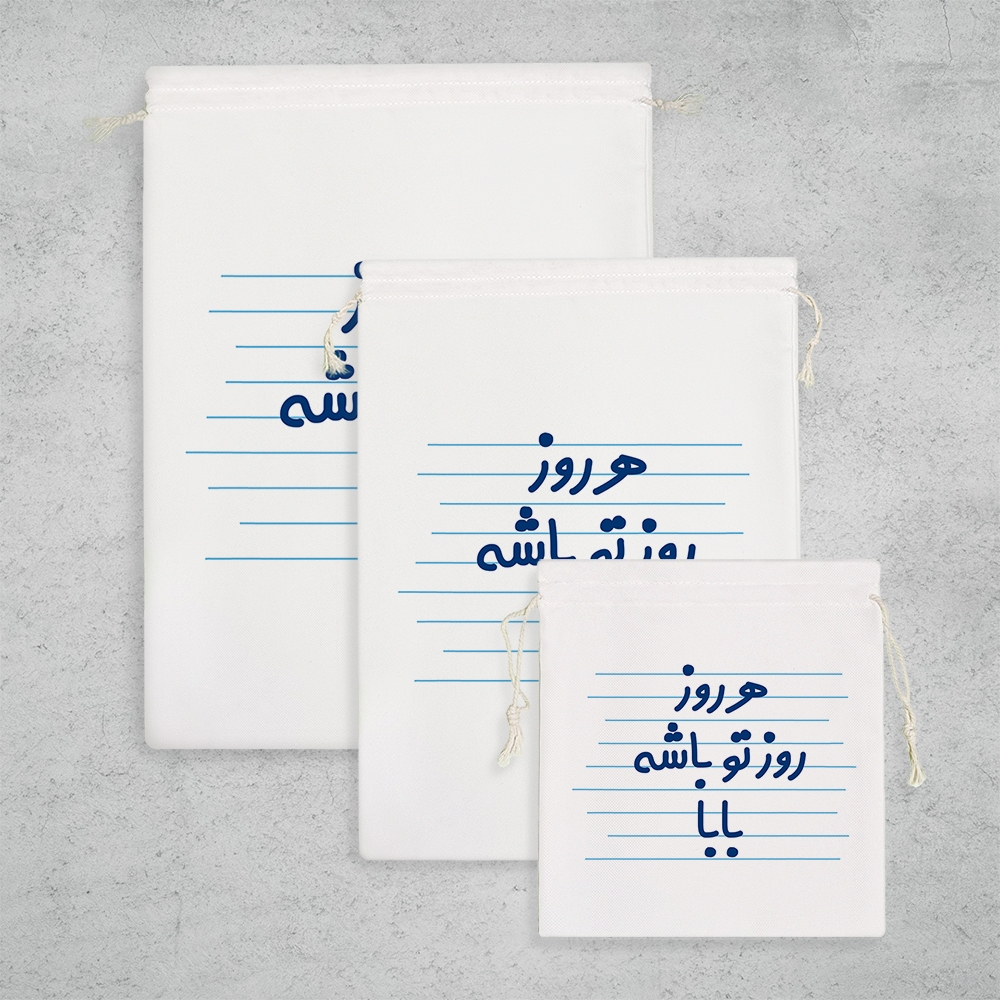 هر روز
روز تو باشه
هر روز
روز تو باشه
بابا